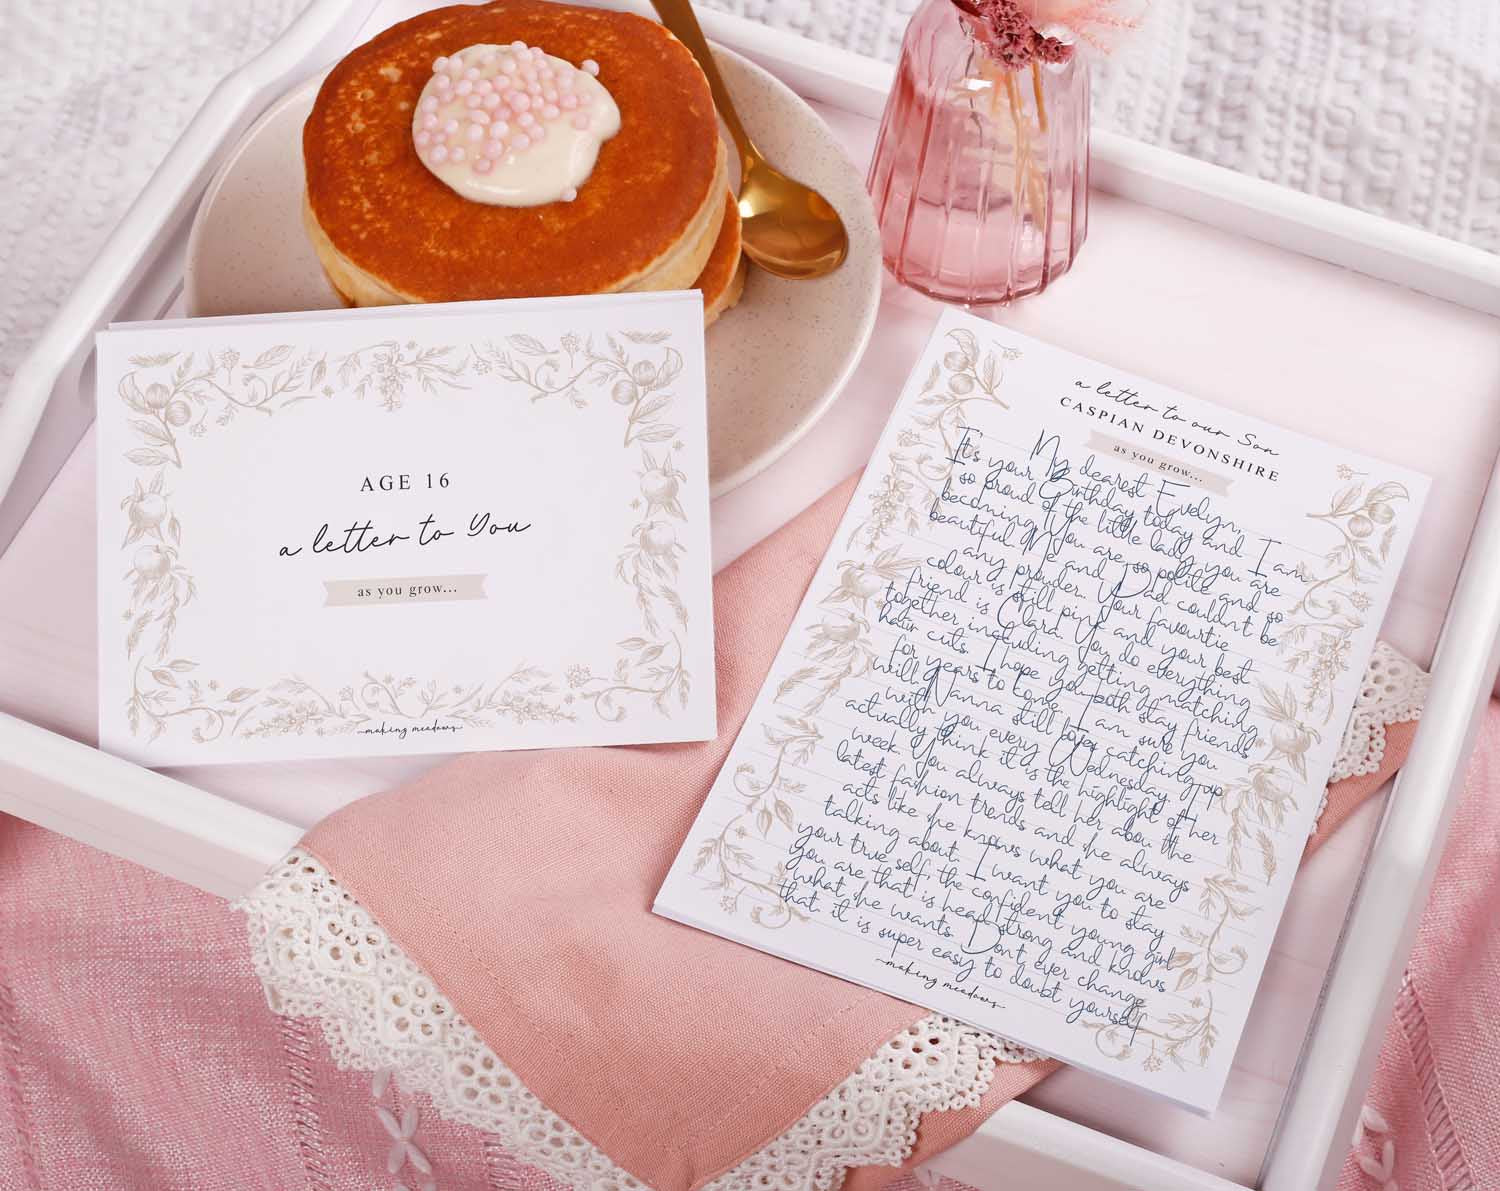 AGE 16
a letter to You
as you grow...
making meadows
a letter to our Son
CASPIAN DEVONSHIRE
as you grow...
My dearest Evelyn,
It's your Birthday today and I am
so proud of the little lady you are
becoming. You are so polite and so
beautiful Me and Dad couldn't be
any prouder. Your favourtie
colour is still pink and your best
friend is Clara. You do everything
together including getting matching
hair cuts. I hope you both stay friends
for years to come. I am sure you
will. Nanna still loves catching up
with you every Wednesday. I
actually think it is the highlight of her
week. You always tell her abou the
latest fashion trends and she always
acts like she knows what you are
talking about. I want you to stay
your true self, the confident young girl
you are that is head strong and knows
what she wants. Dont ever change
that. it is super easy to doubt yourself
making meadows